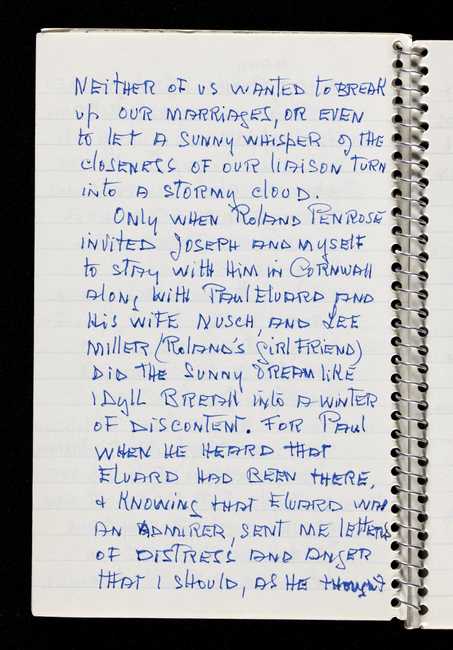 NEITHER OF US WANTED to BREAK
up OUR MARRIAGES, OR EVEN
to LET A SUNNY WHISPER of THE
CLOSENESS OF OUR LIAISON TURN
INTO A STORMY CLOUD.
ONLY WHEN ROLAND PENROSE
INVITED JOSEPH AND MYSELF
to STAY WITH HIM IN CORNWALL
ALONG WITH PAUL ELUARD AND
HIS WIFE NUSCH, AND LEE
MILLER (ROLAND'S GIRLFRIEND)
DID THE SUNNY DREAMLIKE
IDYLL BREAK INTO A WINTER
OF DISCONTENT. FOR PAUL
WHEN HE HEARD THAT
ELUARD HAD BEEN THERE,
& KNOWING THAT ELUARD WAS
AN ADMIRER, SENT ME LETTERS
OF DISTRESS AND ANGER
THAT I SHOULD, AS HE THOUGHT